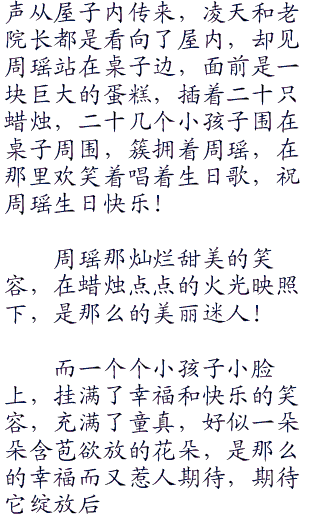 声从屋子内传来，凌天和老
院长都是看向了屋内，却见
周瑶站在桌子边，面前是一
块巨大的蛋糕，插着二十只
蜡烛，二十几个小孩子围在
桌子周围，簇拥着周瑶，在
那里欢笑着唱着生日歌，祝
周瑶生日快乐！
周瑶那灿烂甜美的笑
容，在蜡烛点点的火光映照
下，是那么的美丽迷人！
而一个个小孩子小脸
上，挂满了幸福和快乐的笑
容，充满了童真，好似一朵
朵含苞欲放的花朵，是那么
的幸福而又惹人期待，期待
它绽放后